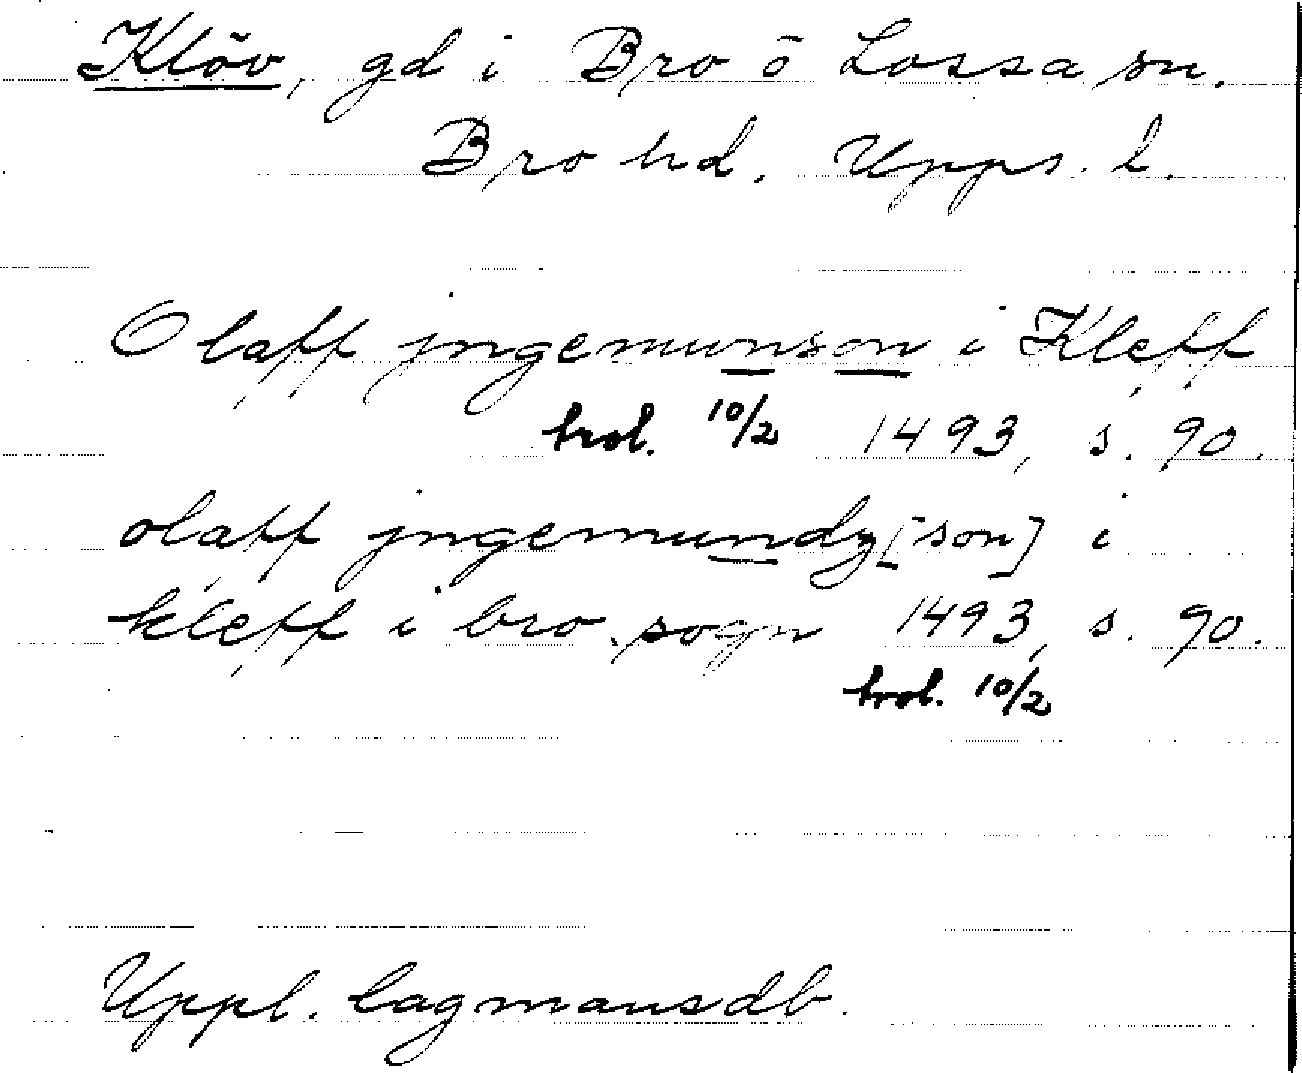 Klöv, gd i Bro o Lossa sn.
Bro hd. Upps. l.
Olaff jngemunson i Kleff
brob. 10/2 1493, s. 90.
olaff jngemundz[son] i
kleff i bro sogn 1493, s. 90.
brob. 10/2
Uppl. lagmansdb.